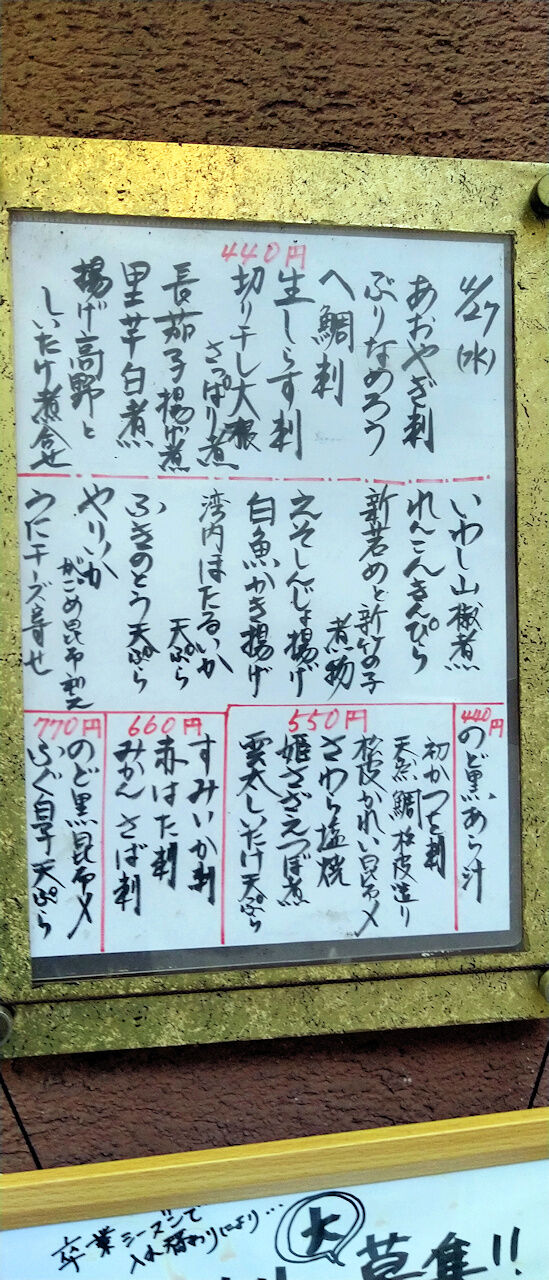 440円
4/27(水)
あおやぎ刺
ぶりなめろう
へ鯛刺
生しらす刺
切り干し大根
さっぱり煮
長茄子揚げ煮
里芋白煮
揚げ高野と
しいたけ煮合せ
いわし山椒煮
れんこんきんぴら
新若めと新竹の子
煮物
えそしんじょ揚げ
白魚かき揚げ
湾内ほたるいか
天ぷら
ふきのとう天ぷら
やりいか
がごめ昆布和え
うにチーズ寄せ
440円
のど黒あら汁
550円
初かつを刺
天然鯛松皮造り
松皮かれい昆布〆
さわら塩焼
姫さざえつぼ煮
雲太しいたけ天ぷら
660円
すみいか刺
赤はた刺
みかんさば刺
770円
のど黒昆布〆
ふぐ白子天ぷら
卒業シーズンで
入れ替わりにより…
大
募集!!